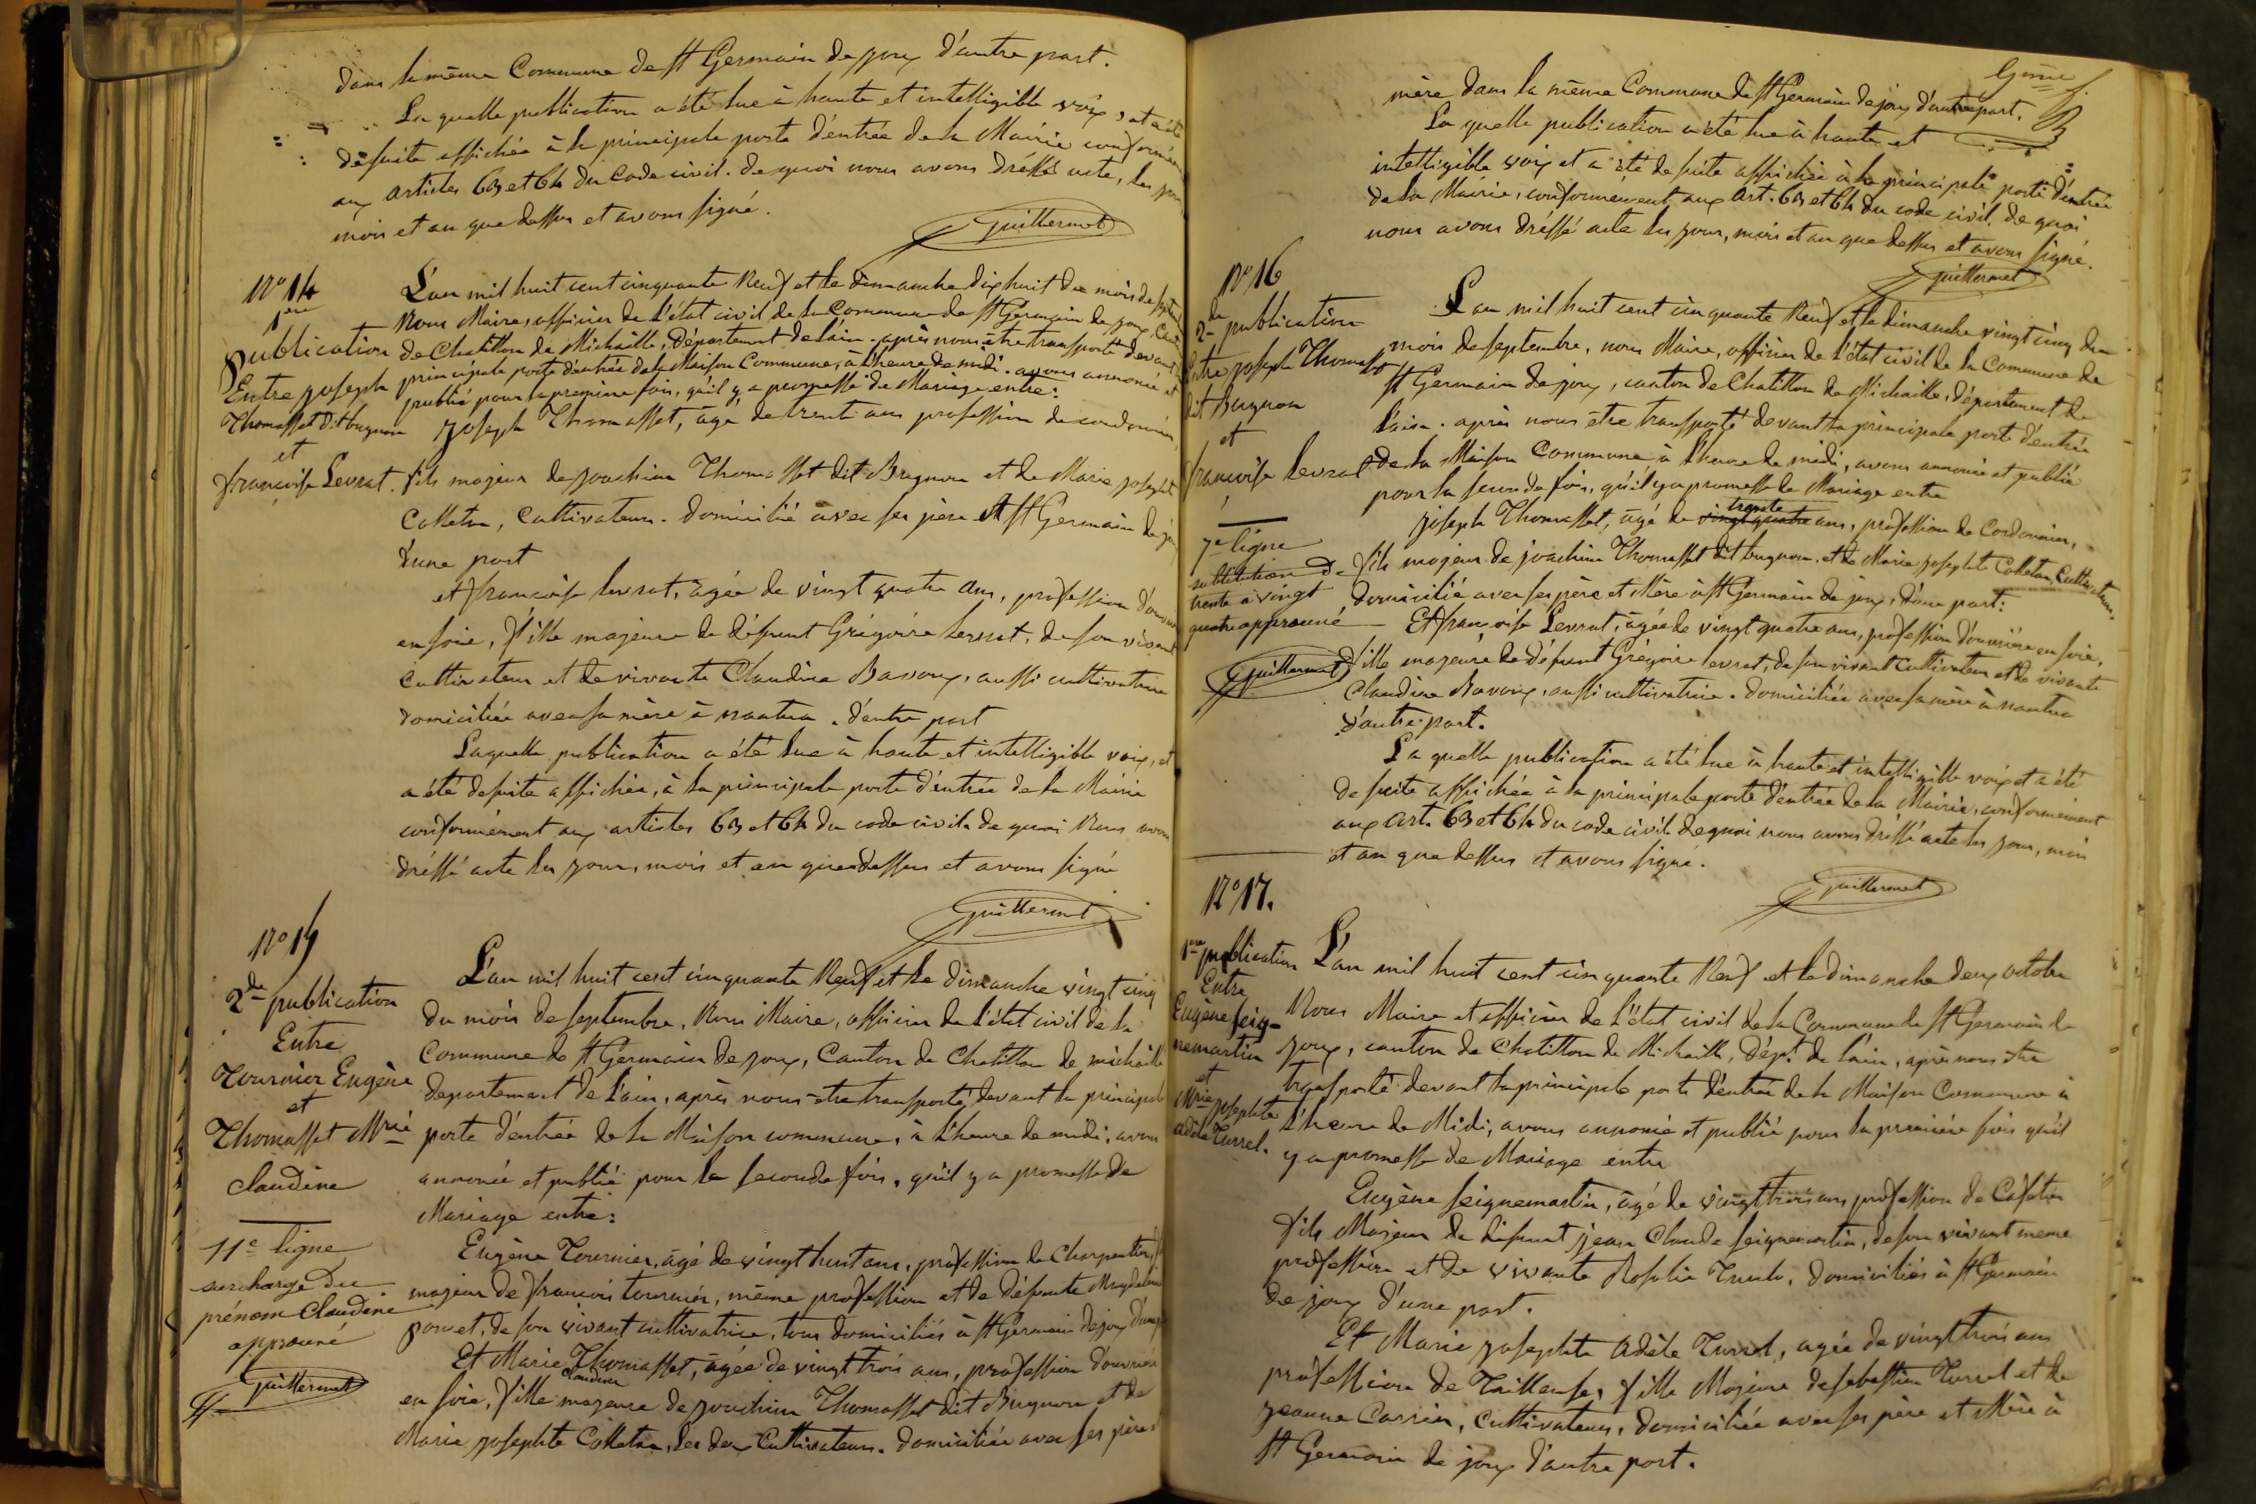 dans la même Commune de St Germain de joux d'autre part.
La quelle publication a été lue à haute et intelligible voix, et a été
de suite affichée à la principale porte d'entrée de la Mairie conformém
aux articles 63 et 64 du Code civil. de quoi nous avons dréssé acte, les jour
mois et an que dessus et avons signé.
Guillermet
N° 14
1ère
publication
Entre joseph
Thomasset dit bugnon
et
françoise Levrat.
L'an mil huit cent cinquante Neuf et le dimanche dix huit du mois de septem
Nous Maire, officier de l'état civil de la Commune de St Germain de joux, Can
de Chatillon de Michaille, département de l'ain. après nous être transporté devant la
principale porte d'entrée de la Maison Commune, à l'heure de midi. avons annoncé et
publié pour la première fois, qu'il y a promesse de Mariage entre:
Joseph Thomasset, âgé de trente ans profession de cordonnier,
fils majeur de joachim Thomasset dit Bugnon et de Marie josephte
Colletaz, Cultivateurs. domicilié avec ses père et St Germain de jo
d'une part
et françoise levrat, âgée de vingt quatre ans, profession d'ouvri
en soie, fille majeure de défunt Grégoire Levrat, de son vivant
Cultivateur et de vivante Claudine Bavoux, aussi cultivatrice
domiciliée avec sa mère à nantua. d'autre part
Laquelle publication a été lue à haute et intelligible voix, et
a été de suite affichée, à la principale porte d'entrée de la Mairie
conformément aux articles 63 et 64 du code civil. de quoi Nous avons
dréssé acte les jour, mois et an que dessus et avons signé
Guillermet
N° 15
2de publication
Entre
Tournier Eugène
et
Thomasset Mrie
claudine
11e ligne
surcharge du
prénom Claudine
approuvé
Guillermet
L'an mil huit cent cinquante Neuf et le dimanche vingt cinq
du mois de septembre, Nous Maire, officier de l'état civil de la
Commune de St Germain de joux, Canton de Chatillon de michaille
departement de l'ain, après nous être transporté devant la principale
porte d'entrée de la Maison commune, à l'heure de midi, avons
annoncé et publié pour la seconde fois, qu'il y a promesse de
Mariage entre:
Eugène Tournier, âgé de vingt huit ans, profession de Charpentier, f
majeur de françois tournier, même profession et de défunte Magdelaine
poncet, de son vivant cultivatrice, tous domiciliés à St Germain de joux d'une p
Et Marie Thomasset, âgée de vingt trois ans, profession d'ouvrière
Claudine
en soie, fille majeure de joachim Thomasset dit Bugnon et de
Marie josephte Colletaz, les deux Cultivateurs. domiciliée avec ses père et
mère dans la même Commune de St Germain de joux d'autre part.
La quelle publication a été lue à haute et
intelligible voix et a été de suite affichée à la principale porte d'entrée
de la Mairie, conformément aux Art. 63 et 64 du code civil. de quoi
nous avons dréssé acte les jour, mois et an que dessus et avons signé.
Guillermet
N° 16
2de publication
Entre joseph Thomasset
dit Bugnon
et
françoise levrat
7e ligne
substitution de
trente à vingt
quatre approuvé
Guillermet
L'an mil huit cent cinquante Neuf et le dimanche vingt cinq du
mois de septembre, nous Maire, officier de l'état civil de la Commune de
St Germain de joux, canton de Chatillon de Michaille, département de
l'ain. après nous être transporté devant la principale porte d'entrée
de la Maison Commune à l'heure de midi, avons annoncé et publié
pour la seconde fois, qu'il y a promesse de Mariage entre
trente
joseph Thomasset, âgé de vingt quatre ans, profession de Cordonnier,
fils majeur de joachim Thomasset dit bugnon, et de Marie josephte Colletaz, Cultivateurs,
domicilié avec ses père et Mère à St Germain de joux, d'une part:
Et françoise Levrat, âgée de vingt quatre ans, profession d'ouvrière en soie,
fille majeure de défunt Grégoire levrat, de son vivant Cultivateur et de vivante
Claudine Bavoux, aussi cultivatrice. domiciliée avec sa mère à nantua
d'autre part.
La quelle publication a été lue à haute et intelligible voix et a été
de suite affichée à la principale porte d'entrée de la Mairie, conformément
aux Art. 63 et 64 du code civil. de quoi nous avons dréssé acte les jour, mois
et an que dessus et avons signé.
Guillermet
N° 17.
1ère publication
Entre
Eugène Seig-
nemartin
et
Mrie josephte
adèle Turrel.
L'an mil huit cent cinquante Neuf et le dimanche deux octobre
Nous Maire et officier de l'état civil de la Commune de St Germain de
joux, canton de Chatillon de Michaille, Dépt. de l'ain, après nous être
transporté devant la principale porte d'entrée de la Maison Commune à
l'heure de Midi, avons annoncé et publié pour la première fois qu'il
y a promesse de Mariage entre
Eugène Seignemartin, âgé de vingt trois ans profession de Cafetier
fils Majeur de défunt jean Claude Seignemartin, de son vivant même
profession et de vivante Rosalie, domiciliés à St Germain
de joux d'une part.
Et Marie josephte Adèle Turrel, agée de vingt trois ans
profession de Tailleuse, fille Majeure de sebastien Turrel et de
jeanne Carrier, Cultivateurs, domiciliée avec ses père et Mère à
St Germain de joux d'autre part.